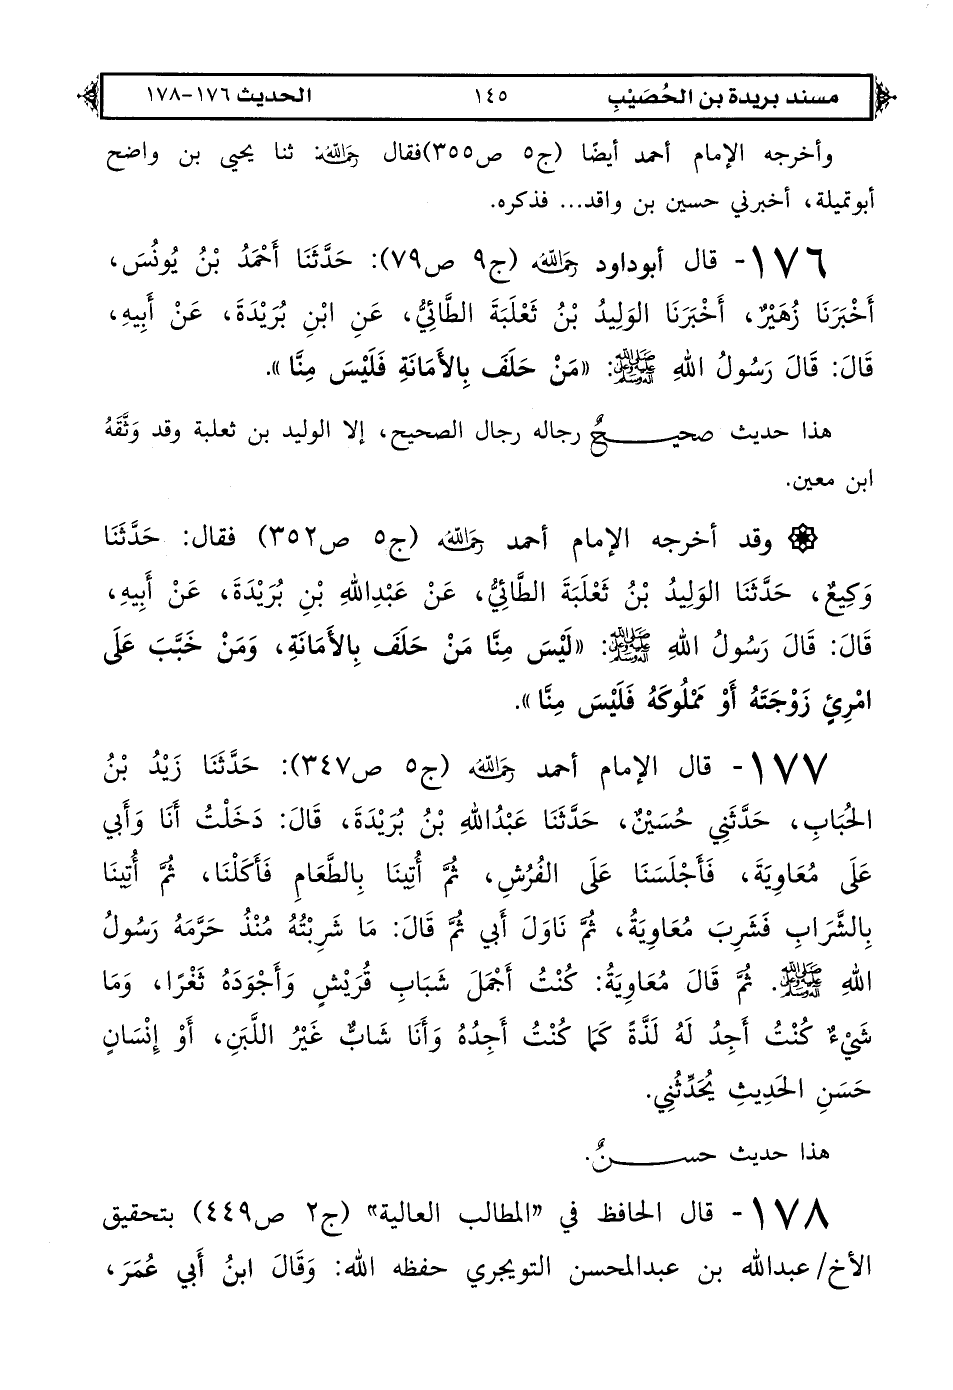 مسند بريدة بن الحُصَيْبِ ١٤٥ الحديث ١٧٦-١٧٨
وأخرجه الإمام أحمد أيضًا (ج٥ ص٣٥٥)فقال رحمه الله: ثنا يحيى بن واضح
أبوتميلة، أخبرني حسين بن واقد... فذكره.
١٧٦- قال أبوداود رحمه الله (ج٩ ص٧٩): حَدَّثَنَا أَحْمَدُ بْنُ يُونُسَ،
أَخْبَرَنَا زُهَيْرٌ، أَخْبَرَنَا الوَلِيدُ بْنُ ثَعْلَبَةَ الطَّائِيُّ، عَنِ ابْنِ بُرَيْدَةَ، عَنْ أَبِيهِ،
قَالَ: قَالَ رَسُولُ اللهِ ﷺ: «مَنْ حَلَفَ بِالأَمَانَةِ فَلَيْسَ مِنَّا».
هذا حديث صحيحٌ رجاله رجال الصحيح، إلا الوليد بن ثعلبة وقد وَثَّقَهُ
ابن معين.
وقد أخرجه الإمام أحمد رحمه الله (ج٥ ص٣٥٢) فقال: حَدَّثَنَا
وَكِيعٌ، حَدَّثَنَا الوَلِيدُ بْنُ ثَعْلَبَةَ الطَّائِيُّ، عَنْ عَبْدِاللهِ بْنِ بُرَيْدَةَ، عَنْ أَبِيهِ،
قَالَ: قَالَ رَسُولُ اللهِ ﷺ: «لَيْسَ مِنَّا مَنْ حَلَفَ بِالأَمَانَةِ، وَمَنْ خَبَّبَ عَلَى
امْرِئٍ زَوْجَتَهُ أَوْ مَمْلُوكَهُ فَلَيْسَ مِنَّا».
١٧٧- قال الإمام أحمد رحمه الله (ج٥ ص٣٤٧): حَدَّثَنَا زَيْدُ بْنُ
الحُبَابِ، حَدَّثَنِي حُسَيْنٌ، حَدَّثَنَا عَبْدُاللهِ بْنُ بُرَيْدَةَ، قَالَ: دَخَلْتُ أَنَا وَأَبِي
عَلَى مُعَاوِيَةَ، فَأَجْلَسَنَا عَلَى الفُرُشِ، ثُمَّ أُتِينَا بِالطَّعَامِ فَأَكَلْنَا، ثُمَّ أُتِينَا
بِالشَّرَابِ فَشَرِبَ مُعَاوِيَةُ، ثُمَّ نَاوَلَ أَبِي ثُمَّ قَالَ: مَا شَرِبْتُهُ مُنْذُ حَرَّمَهُ رَسُولُ
اللهِ ﷺ. ثُمَّ قَالَ مُعَاوِيَةُ: كُنْتُ أَجْمَلَ شَبَابِ قُرَيْشٍ وَأَجْوَدَهُ ثَغْرًا، وَمَا
شَيْءٌ كُنْتُ أَجِدُ لَهُ لَذَّةً كَمَا كُنْتُ أَجِدُهُ وَأَنَا شَابٌّ غَيْرُ اللَّبَنِ، أَوْ إِنْسَانٍ
حَسَنِ الحَدِيثِ يُحَدِّثُنِي.
هذا حديث حسنٌ.
١٧٨- قال الحافظ في «المطالب العالية» (ج٢ ص٤٤٩) بتحقيق
الأخ/عبدالله بن عبدالمحسن التويجري حفظه الله: وَقَالَ ابنُ أَبِي عُمَرَ،